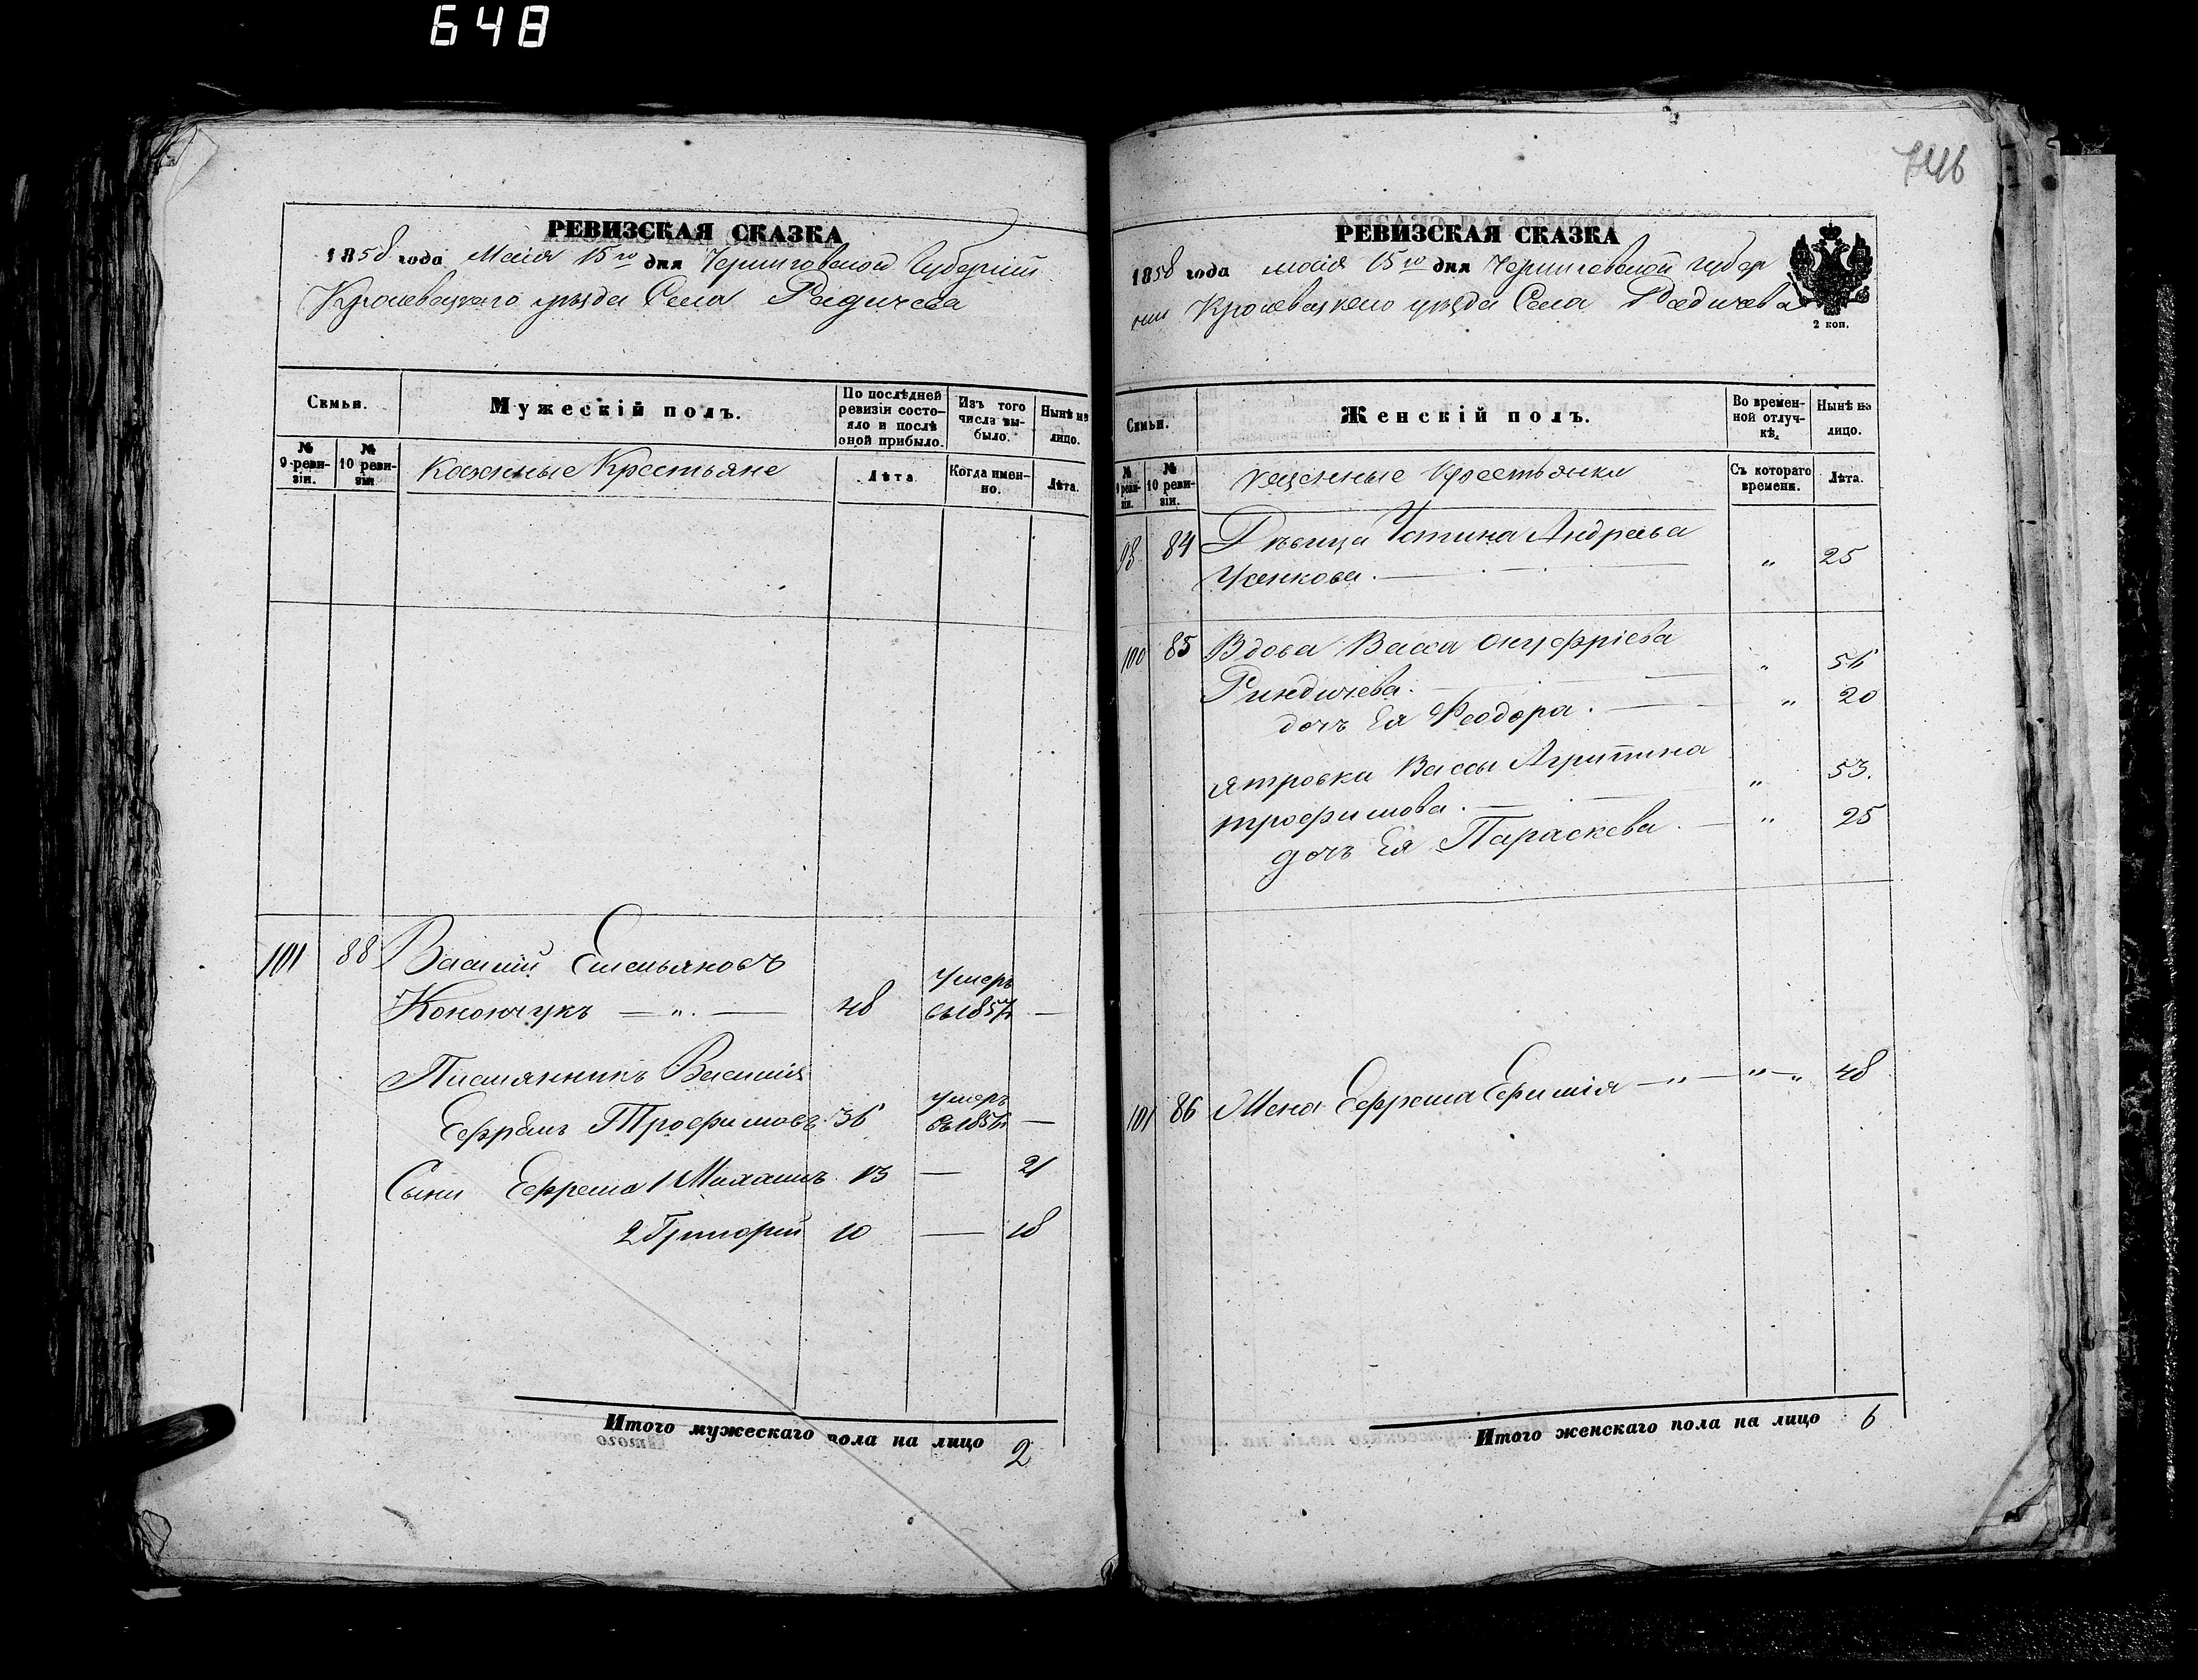 648
РЕВИЗСКАЯ СКАЗКА
1858 года Маія 15го дня Черниговской Губерніи
Кролевецкаго уѣзда Села Радичева
Семьи.
Мужескій полъ.
По послѣдней ревизіи состо-
яло и послѣ оной прибыло.
Изъ того числа вы-
было.
Нынѣ на лицо.
№ 9 реви-
зіи.
№ 10 реви-
зіи
Казенные Крестьяне
Лѣта
Когда имен-
но.
Лѣта.
101 88 Василий Емельяновъ
Конончукъ — „ — 48 Умеръ въ 1857 —
Племянникъ Василія
Ефремъ Трофимовъ 36 умеръ въ 1856 —
Сыни Ефрема 1 Михаилъ 13 — 21
2 Григорий 10 — 18
Итого мужескаго пола на лицо 2
746
РЕВИЗСКАЯ СКАЗКА
1858 года маія 15го дня Черниговской губер
ніи Кролевецкаго уѣзда Села Радичева
2 коп.
Семьи.
Женскій полъ.
Во времен-
ной отлуч-
кѣ.
Нынѣ на лицо.
№ 9 реви-
зіи.
№ 10 реви-
зіи.
казенные Крестьянки
Съ котораго времени.
Лѣта.
98 84 Дѣвица Устина Андреева
Усенкова. — „ 25
100 85 Вдова Васса Онуфріева
Риндичева. — „ 56
дочъ Ея Феодора. — „ 20
Ятровка Вассы Агрипина
трофимова. — „ 53.
дочъ Ея Параскева. — „ 25
101 86 Жена Ефрема Ефимія — „ — „ — „ 48
Итого женскаго пола на лицо 6